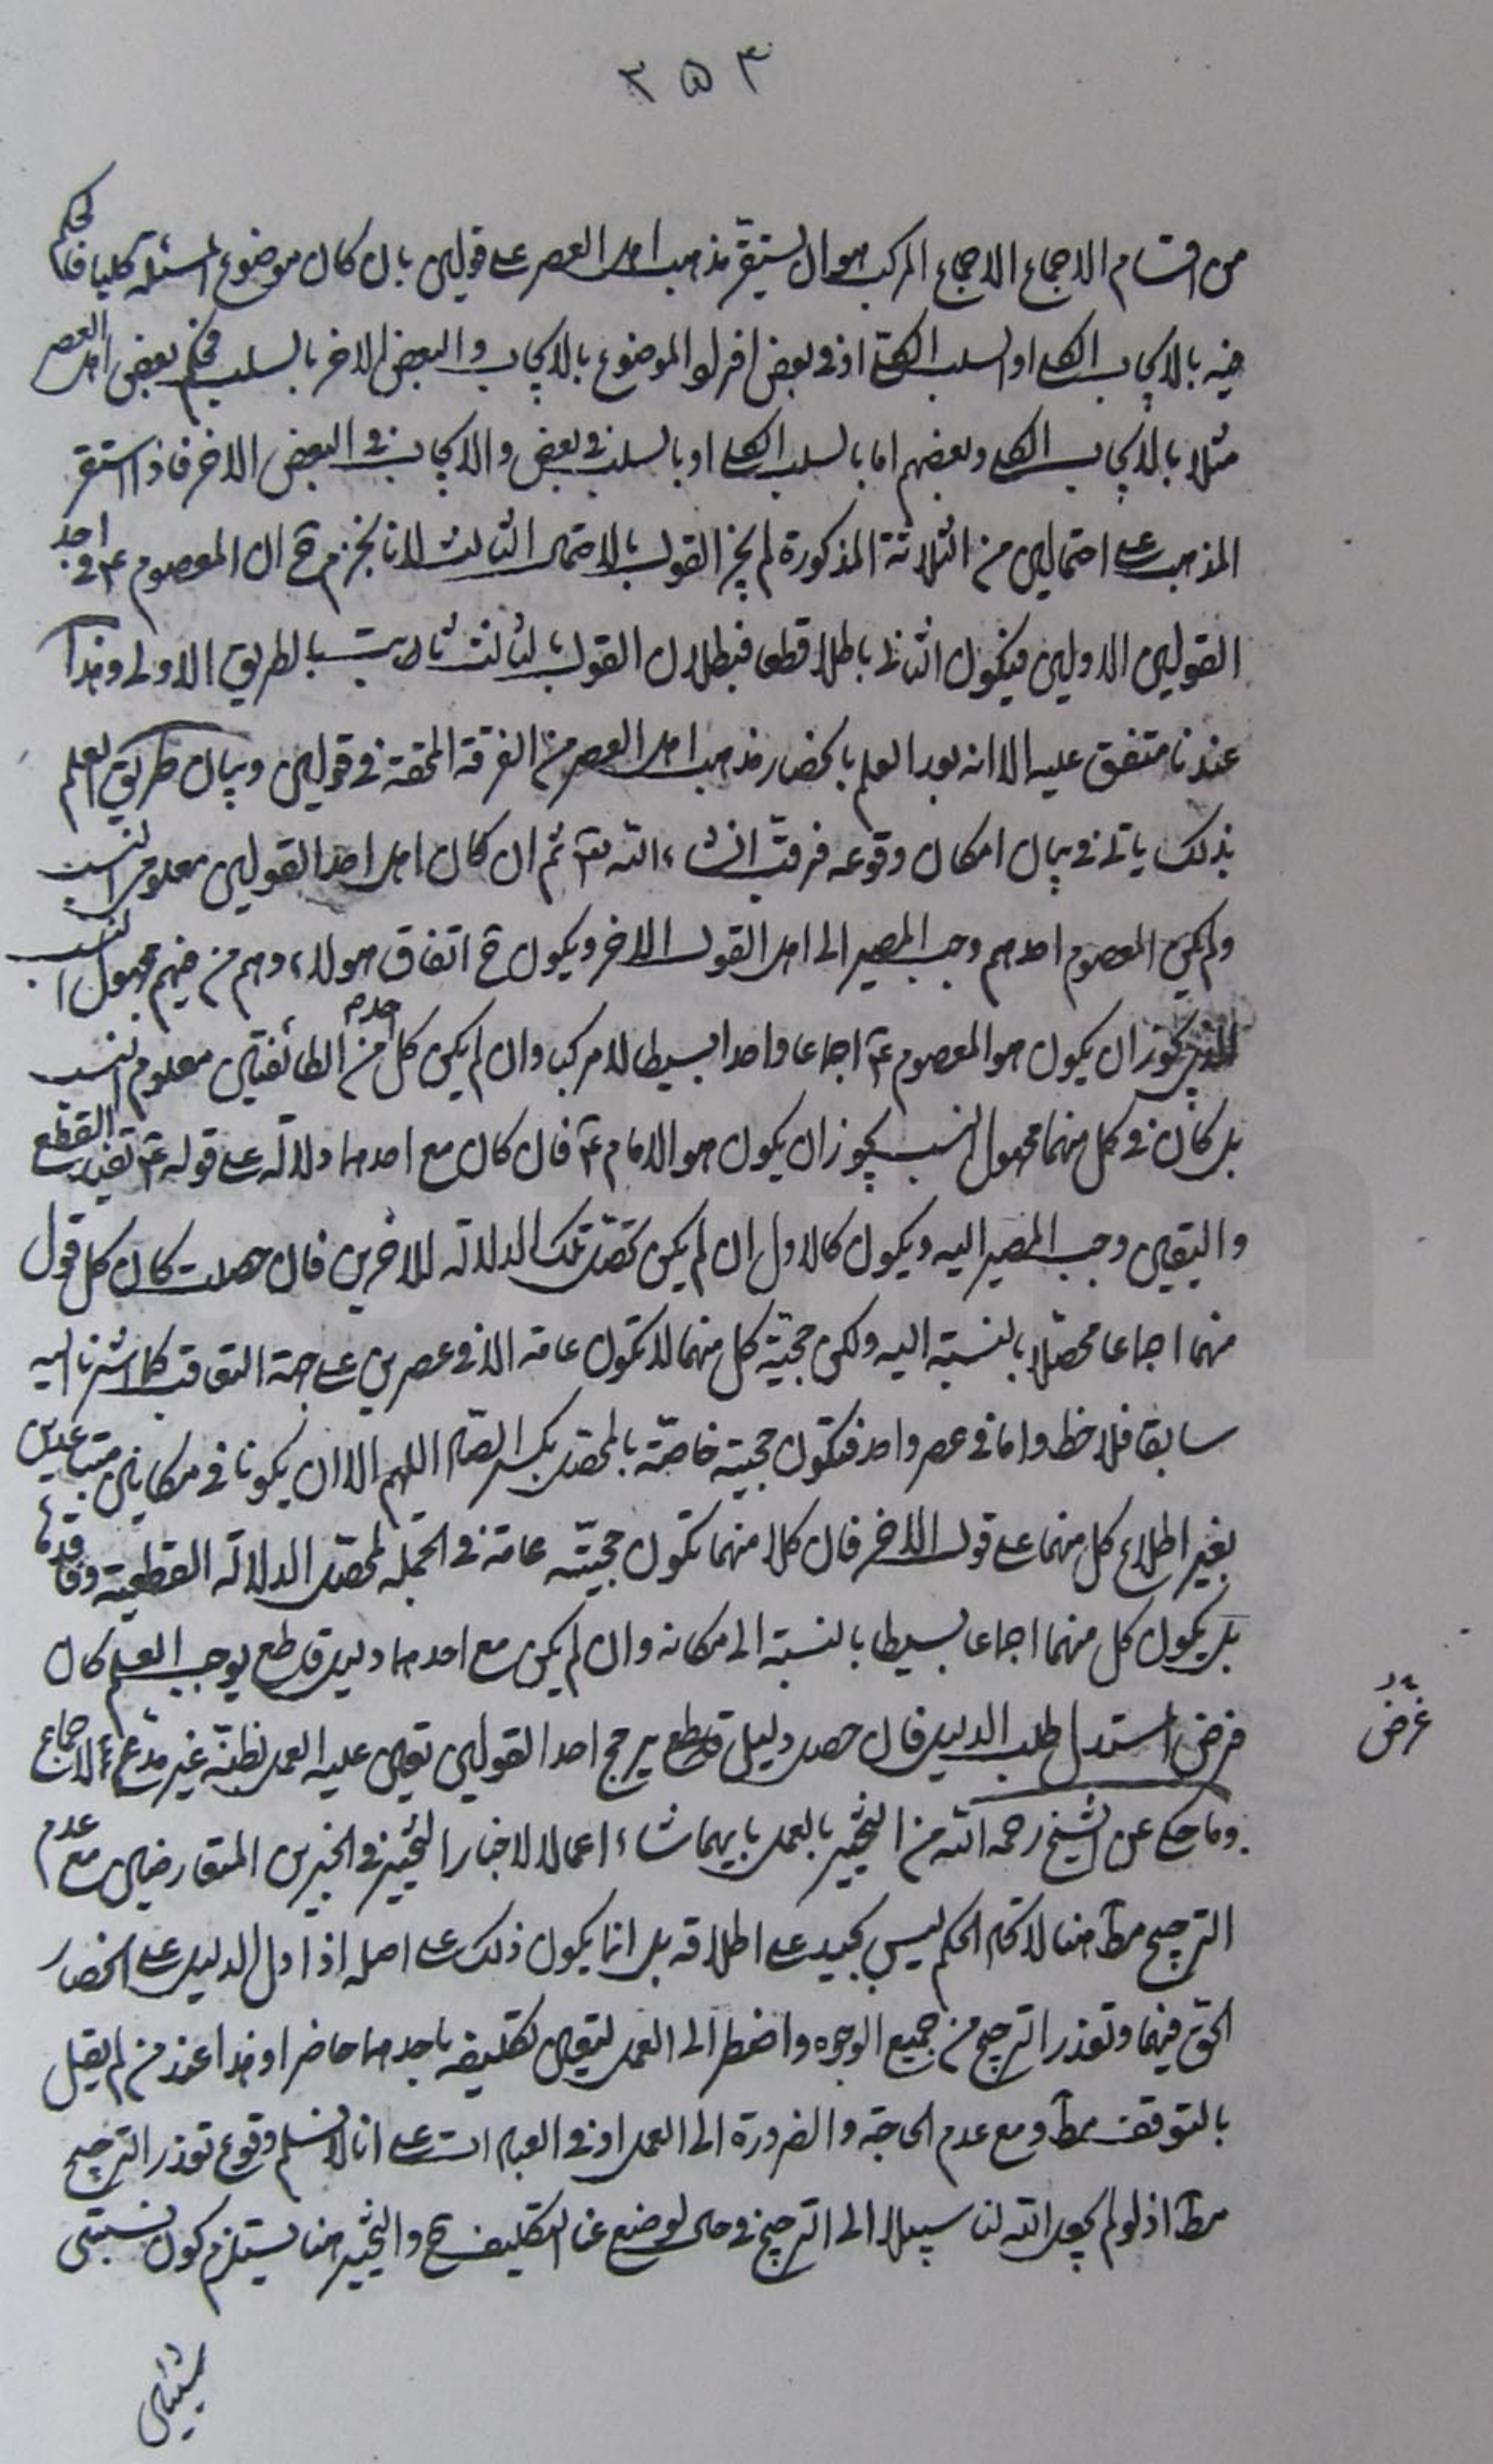 ٣٥٣
من اقسام الاجماع الاجماع المركب هو ان يستقر مذهب اهل العصر على قولين بان كان موضوع المسئلة كليا فالحكم
فيه بالايجاب الكلى او السلب الكلى او فى بعض افراد الموضوع بالايجاب والبعض الاخر بالسلب فحكم بعض اهل العصر
مثلا بالايجاب الكلى وبعضهم اما بالسلب الكلى او بالسلب فى بعض والايجاب فى البعض الاخر فاذا استقر
المذهب على احتمالين من الثلاثة المذكورة لم يجز القول بالاحتمال الثالث لانا نجزم ح ان المعصوم ع فى احد
القولين الاولين فيكون الثانى باطلا قطعا فبطلان القول بالثالث ثابت بالطريق الاولى وهذا
عندنا متفق عليه الا انه بعد العلم بانحصار مذهب اهل العصر من الفرقة المحقة فى قولين وبيان طريق العلم
بذلك ياتى فى بيان امكان وقوعه فرقب انشاء الله تع ثم ان كان اهل احد القولين معلومى النسب
ولم يكن المعصوم احدهم وجب المصير الى اهل القول الاخر ويكون ح اتفاق هولاء وهم من فيهم مجهول النسب
الذى يجوز ان يكون هو المعصوم ع اجماعا واحدا بسيطا لا مركب وان لم يكن كل احد من الطائفتين معلوم النسب
بل كان فى كل منهما مجهول النسب يجوز ان يكون هو الامام ع فان كان مع احدهما دلالة على قوله ع تفيد القطع
واليقين وجب المصير اليه ويكون كالاول ان لم يكن تحصل تلك الدلالة للاخرين فان حصلت كان كل قول
منهما اجماعا محصلا بالنسبة اليه ولكن حجية كل منهما لا تكون عامة الا فى عصرين على جهة التعاقب كما اشرنا اليه
سابقا فلاحظ واما فى عصر واحد فتكون حجية خاصة بالمحصل بكسر الصاد اللهم الا ان يكونا فى مكانين متباعدين
بغير اطلاع كل منهما على قول الاخر فان كلا منهما تكون حجيته عامة فى الجملة لمحصل الدلالة القطعية وفاقدها
بل يكون كل منهما اجماعا بسيطا بالنسبة الى مكانه وان لم يكن مع احدهما دليل قاطع يوجب العلم كان
فرض المستدل طلب الدليل فان حصل دليل قاطع يرجح احد القولين تعين عليه العمل بظنه غير مدع للاجماع
غرض
وما حكى عن الشيخ رحمه الله من التخيير بالعمل بايهما شاء اعمالا لاخبار التخيير فى الخبرين المتعارضين مع عدم
الترجيح مط هنا لاتحاد الحكم ليس بجيد على اطلاقه بل انما يكون ذلك على اصله اذا دل الدليل على انحصار
الحق فيهما وتعذر الترجيح من جميع الوجوه واضطر الى العمل لتعين تكليفه باحدهما حاضرا وهذا عند من لم يقل
بالتوقف مط ومع عدم الحاجة والضرورة الى العمل او فى العبادات على انا لا نسلم وقوع تعذر الترجيح
مط اذ لو لم يجعل الله لنا سبيلا الى الترجيح فى حال لوضع عنا التكليف ح والتخيير هنا يستلزم كون نسبتى